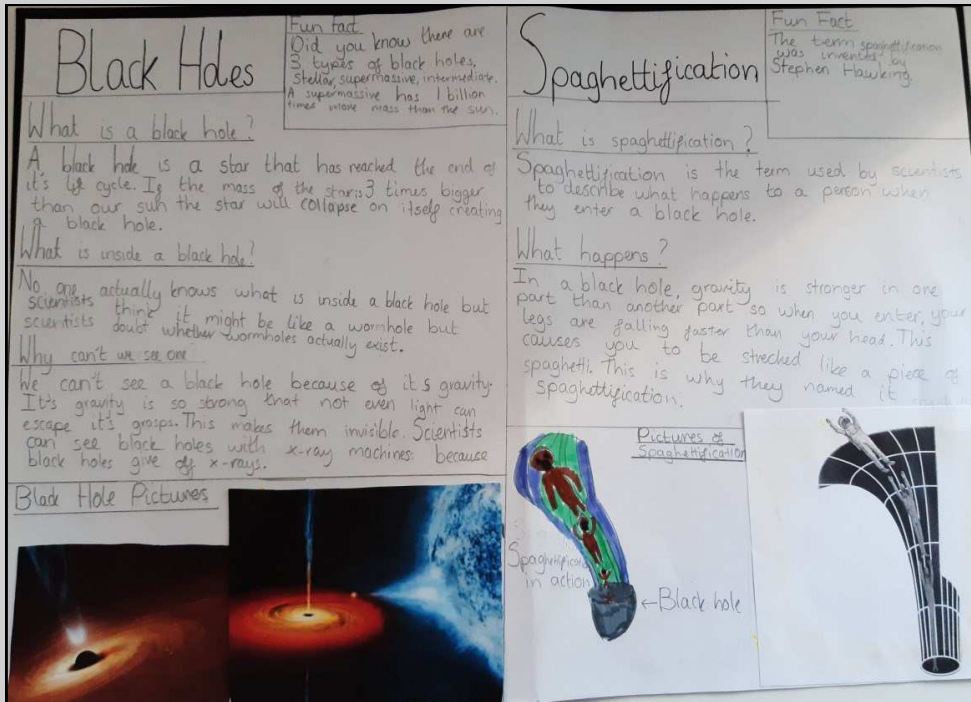 Black Holes
Fun Fact
Did you know there are
3 types of black holes,
Stellar, supermassive, intermediate.
A supermassive has 1 billion
times more mass than the sun.
What is a black hole?
A black hole is a star that has reached the end of
it's life cycle. If the mass of the star is 3 times bigger
than our sun the star will collapse on itself creating
a black hole.
What is inside a black hole?
No one actually knows what is inside a black hole but
scientists think it might be like a wormhole but
scientists doubt whether wormholes actually exist.
Why can't we see one
We can't see a black hole because of it's gravity.
It's gravity is so strong that not even light can
escape it's grasps. This makes them invisible. Scientists
can see black holes with x-ray machines because
black holes give of x-rays.
Black Hole Pictures
Spaghettification
Fun Fact
The term spaghettification
was invented by
Stephen Hawking.
What is spaghettification?
Spaghettification is the term used by scientists
to describe what happens to a person when
they enter a black hole.
What happens?
In a black hole, gravity is stronger in one
part than another part so when you enter, your
legs are falling faster than your head. This
causes you to be streched like a piece of
spaghetti. This is why they named it
spaghettification.
Pictures of
Spaghettification
in action
←Black hole